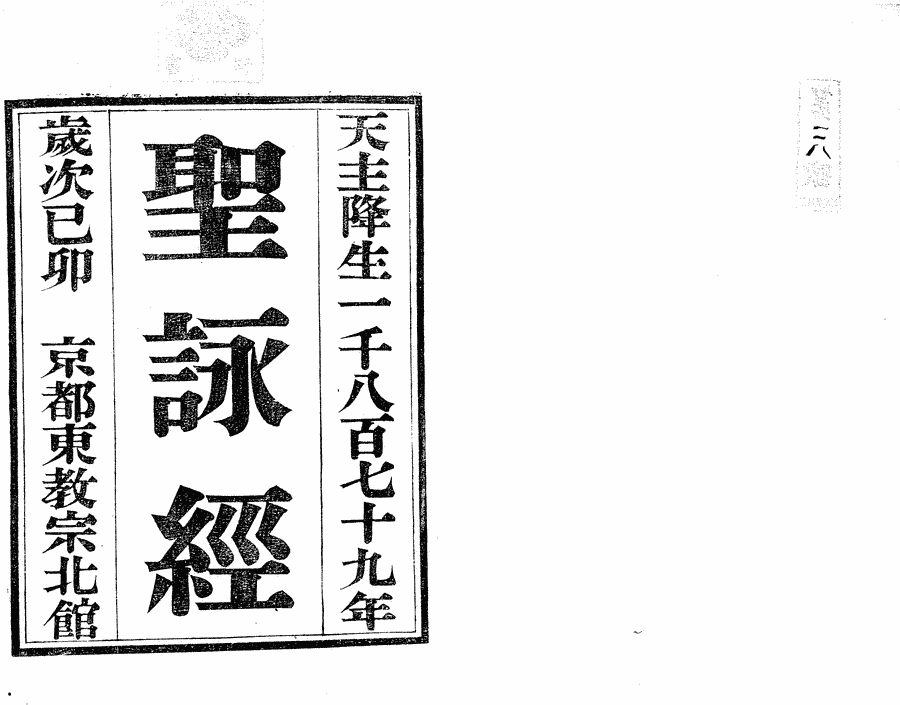 二八
天主降生一千八百七十九年
聖詠經
歲次己卯 京都東教宗北館